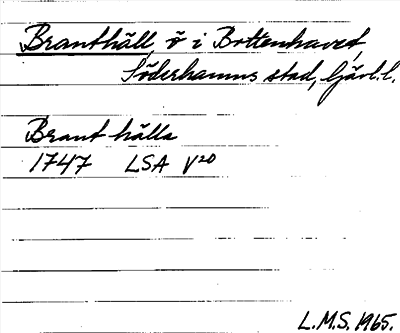 Branthäll, ö i Bottenhavet,
Söderhamns stad, Gävl.l.
Brant hälla
1747 LSA V20
L.M.S. 1965.